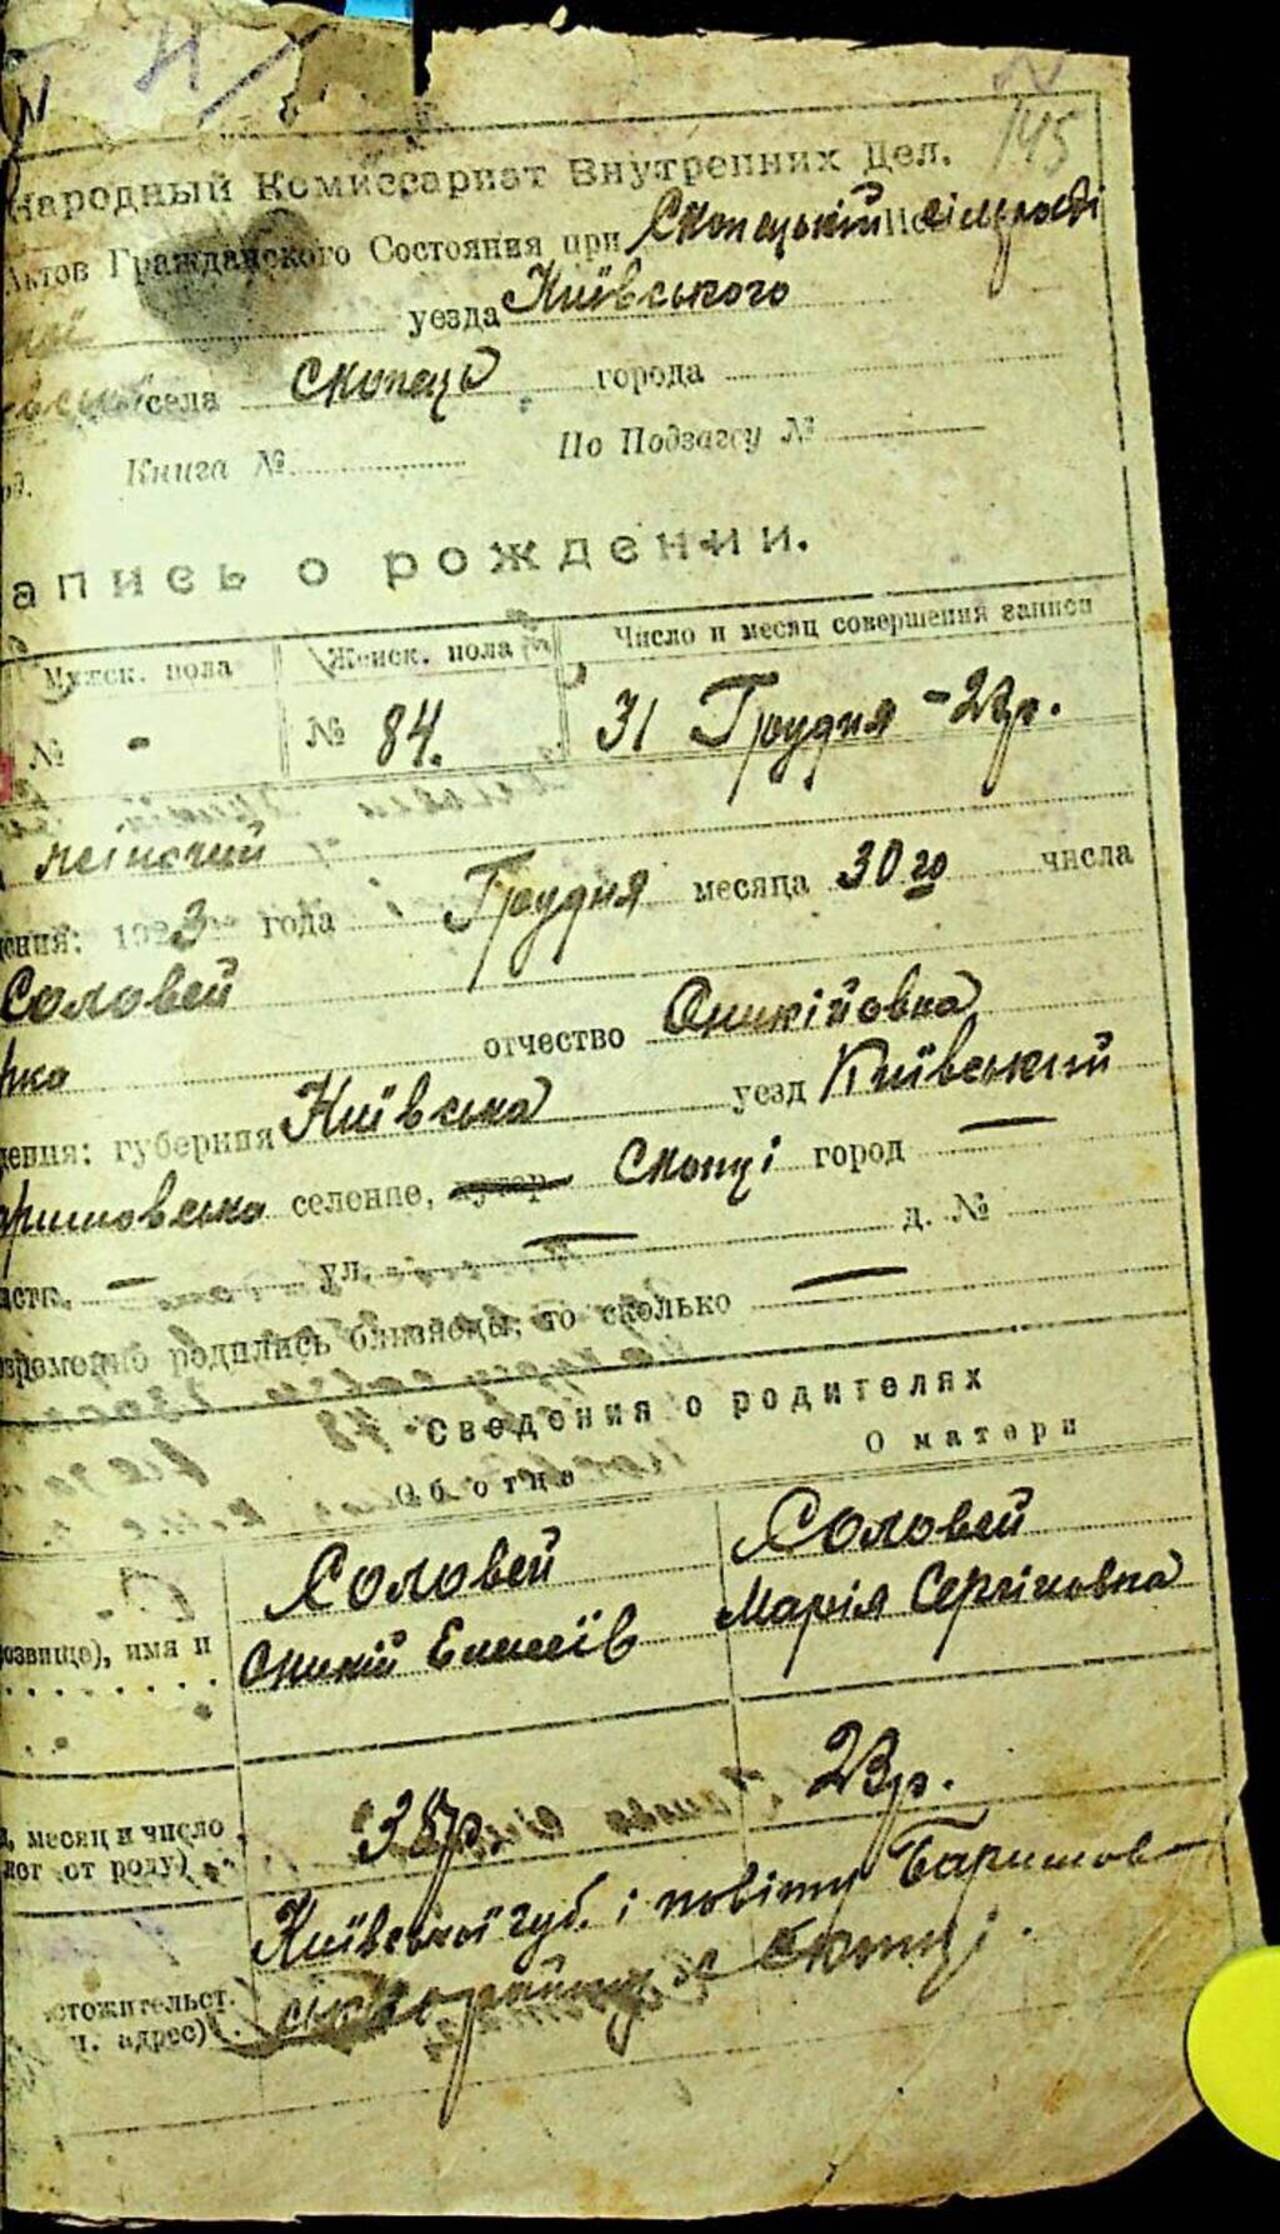 145
Народный Комиссариат Внутренних Дел.
Актов Гражданского Состояния при Скопецькій сільраді
уезда Київського
села Скопець города
Книга № По Подзагсу №
апись о рождении.
Мужск. пола Женск. пола Число и месяц совершения записи
№ - № 84. 31 Грудня - 23р.
жіночий
дения: 1923 года Грудня месяца 30го числа
Соловей
отчество Оникійовна
дения: губерния Київська уезд Київський
аришовська селение, хутор Скопці город —
астк. — ул. — д. №
овременно родились близнецы, то сколько —
Сведения о родителях
Об отце О матери
Соловей Соловей
озвище), имя и Оникій Елисеїв Марія Сергіновна
месяц и число 23р.
лет от роду)
Київської губ. і повіту Баришов-
ського району с Скопці.
стожительст.
ч. адрес)